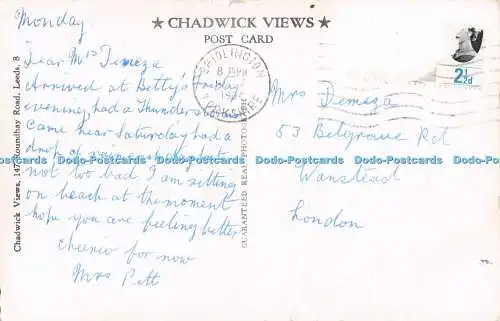 Monday
★ CHADWICK VIEWS ★
POST CARD
Dear Mrs Demeza
Arrived at Betty's Friday
evening, had a Thunderstorm
Came here Saturday had a
drop of rain but
not too bad I am sitting
on beach at the moment
hope you are feeling better
cheerio for now
Mrs Pitt
Chadwick Views, 147 Roundhay Road, Leeds, 8
GUARANTEED REAL PHOTOGRAPH
BRIDLINGTON
YORKSHIRE
2½d
Mrs Demeza
53 Belgrave Rd
Wanstead
London
Dodo-Postcards Dodo-Postcards Dodo-Postcards Dodo-Postcards Dodo-Postcards